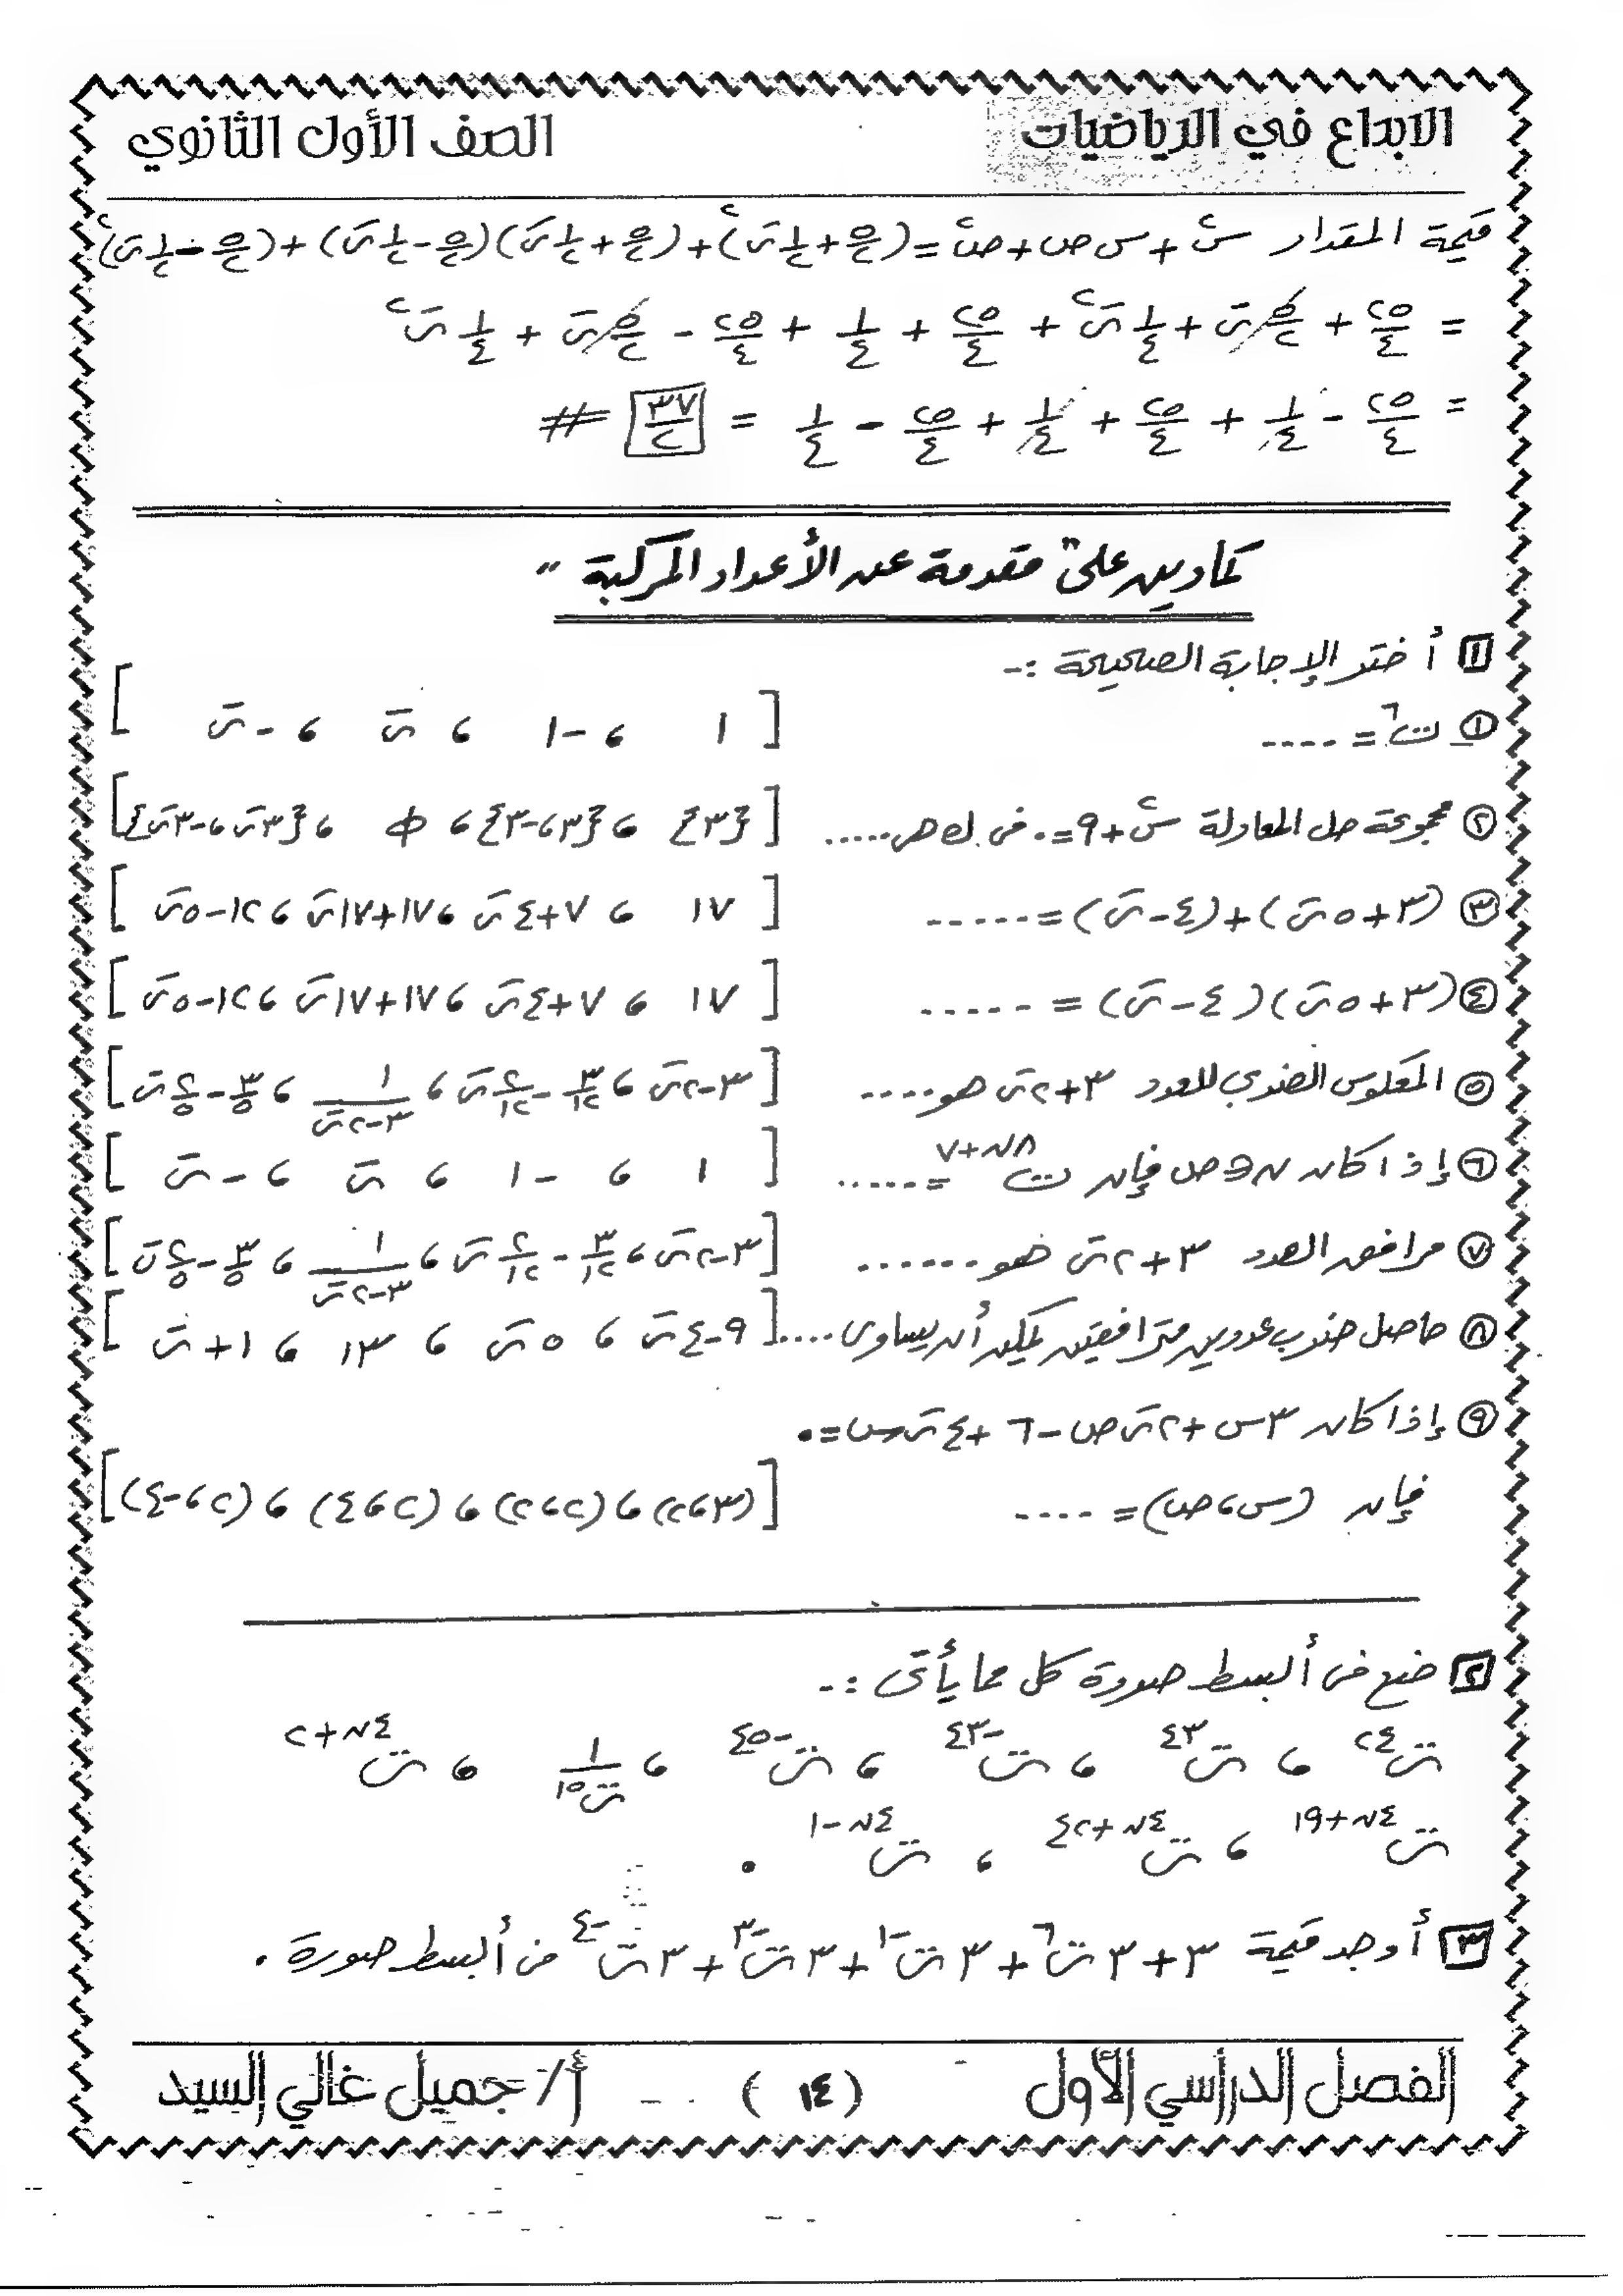 الابداع في الرياضيات
الصف الأول الثانوي
قيمة المقدار س² + س ص + ص² = (٥/٢ + ١/٢ ت)² + (٥/٢ + ١/٢ ت)(٥/٢ - ١/٢ ت) + (٥/٢ - ١/٢ ت)²
= ٢٥/٤ + ٥/٢ ت + ١/٤ ت² + ٢٥/٤ + ١/٤ + ٢٥/٤ - ٥/٢ ت + ١/٤ ت²
= ٢٥/٤ - ١/٤ + ٢٥/٤ + ١/٤ + ٢٥/٤ - ١/٤ = ٣٧/٢ #
تمارين على " مقدمة عن الأعداد المركبة "
١ أختر الإجابة الصحيحة :-
① ت⁶ = .... [ ١ ، -١ ، ت ، -ت ]
② مجموعة حل المعادلة س² + ٩ = ٠ في ك هى ..... [ {٣} ، {٣ ، -٣} ، Φ ، {٣ت ، -٣ت} ]
③ (٣ + ٥ت) + (٤ - ت) = ..... [ ١٧ ، ٧+٤ت ، ١٧+١٧ت ، ١٢-٥ت ]
④ (٣ + ٥ت)(٤ - ت) = ..... [ ١٧ ، ٧+٤ت ، ١٧+١٧ت ، ١٢-٥ت ]
⑤ المعكوس الضربي للعدد ٣+٢ت هو .... [ ٣-٢ت ، ٣/١٣ - ٢/١٣ ت ، ١/(٣-٢ت) ، ٣/٥ - ٢/٥ ت ]
⑥ إذا كان ن ∈ ص فإن ت^(٨ن+٧) = ..... [ ١ ، -١ ، ت ، -ت ]
⑦ مرافق العدد ٣+٢ت هو ...... [ ٣-٢ت ، ٣/١٣ - ٢/١٣ ت ، ١/(٣-٢ت) ، ٣/٥ - ٢/٥ ت ]
⑧ حاصل ضرب عددين مترافقين يمكن أن يساوى .... [ ٩-٤ت ، ٥ت ، ١٣ ، ١+ت ]
⑨ إذا كان ٣س + ٢ت ص - ٦ + ٤ت س = ٠
فإن (س ، ص) = .... [ (٣ ، ٢) ، (٢ ، ٢) ، (٢ ، ٤) ، (٢ ، -٤) ]
٢ ضع فى أبسط صورة كل مما يأتى :-
ت^٢٤ ، ت^٤٣ ، ت^-٤٣ ، ت^-٤٥ ، ١/ت^١٥ ، ت^(٤ن+٢)
ت^(٤ن+١٩) ، ت^(٤ن+٤٢) ، ت^(٤ن-١) .
٣ أوجد قيمة ٣ + ٣ت^٦ + ٣ت^-١ + ٣ت^-٣ + ٣ت^-٤ فى أبسط صورة .
الفصل الدراسي الأول
( ١٤ )
أ/ جميل غالي السيد